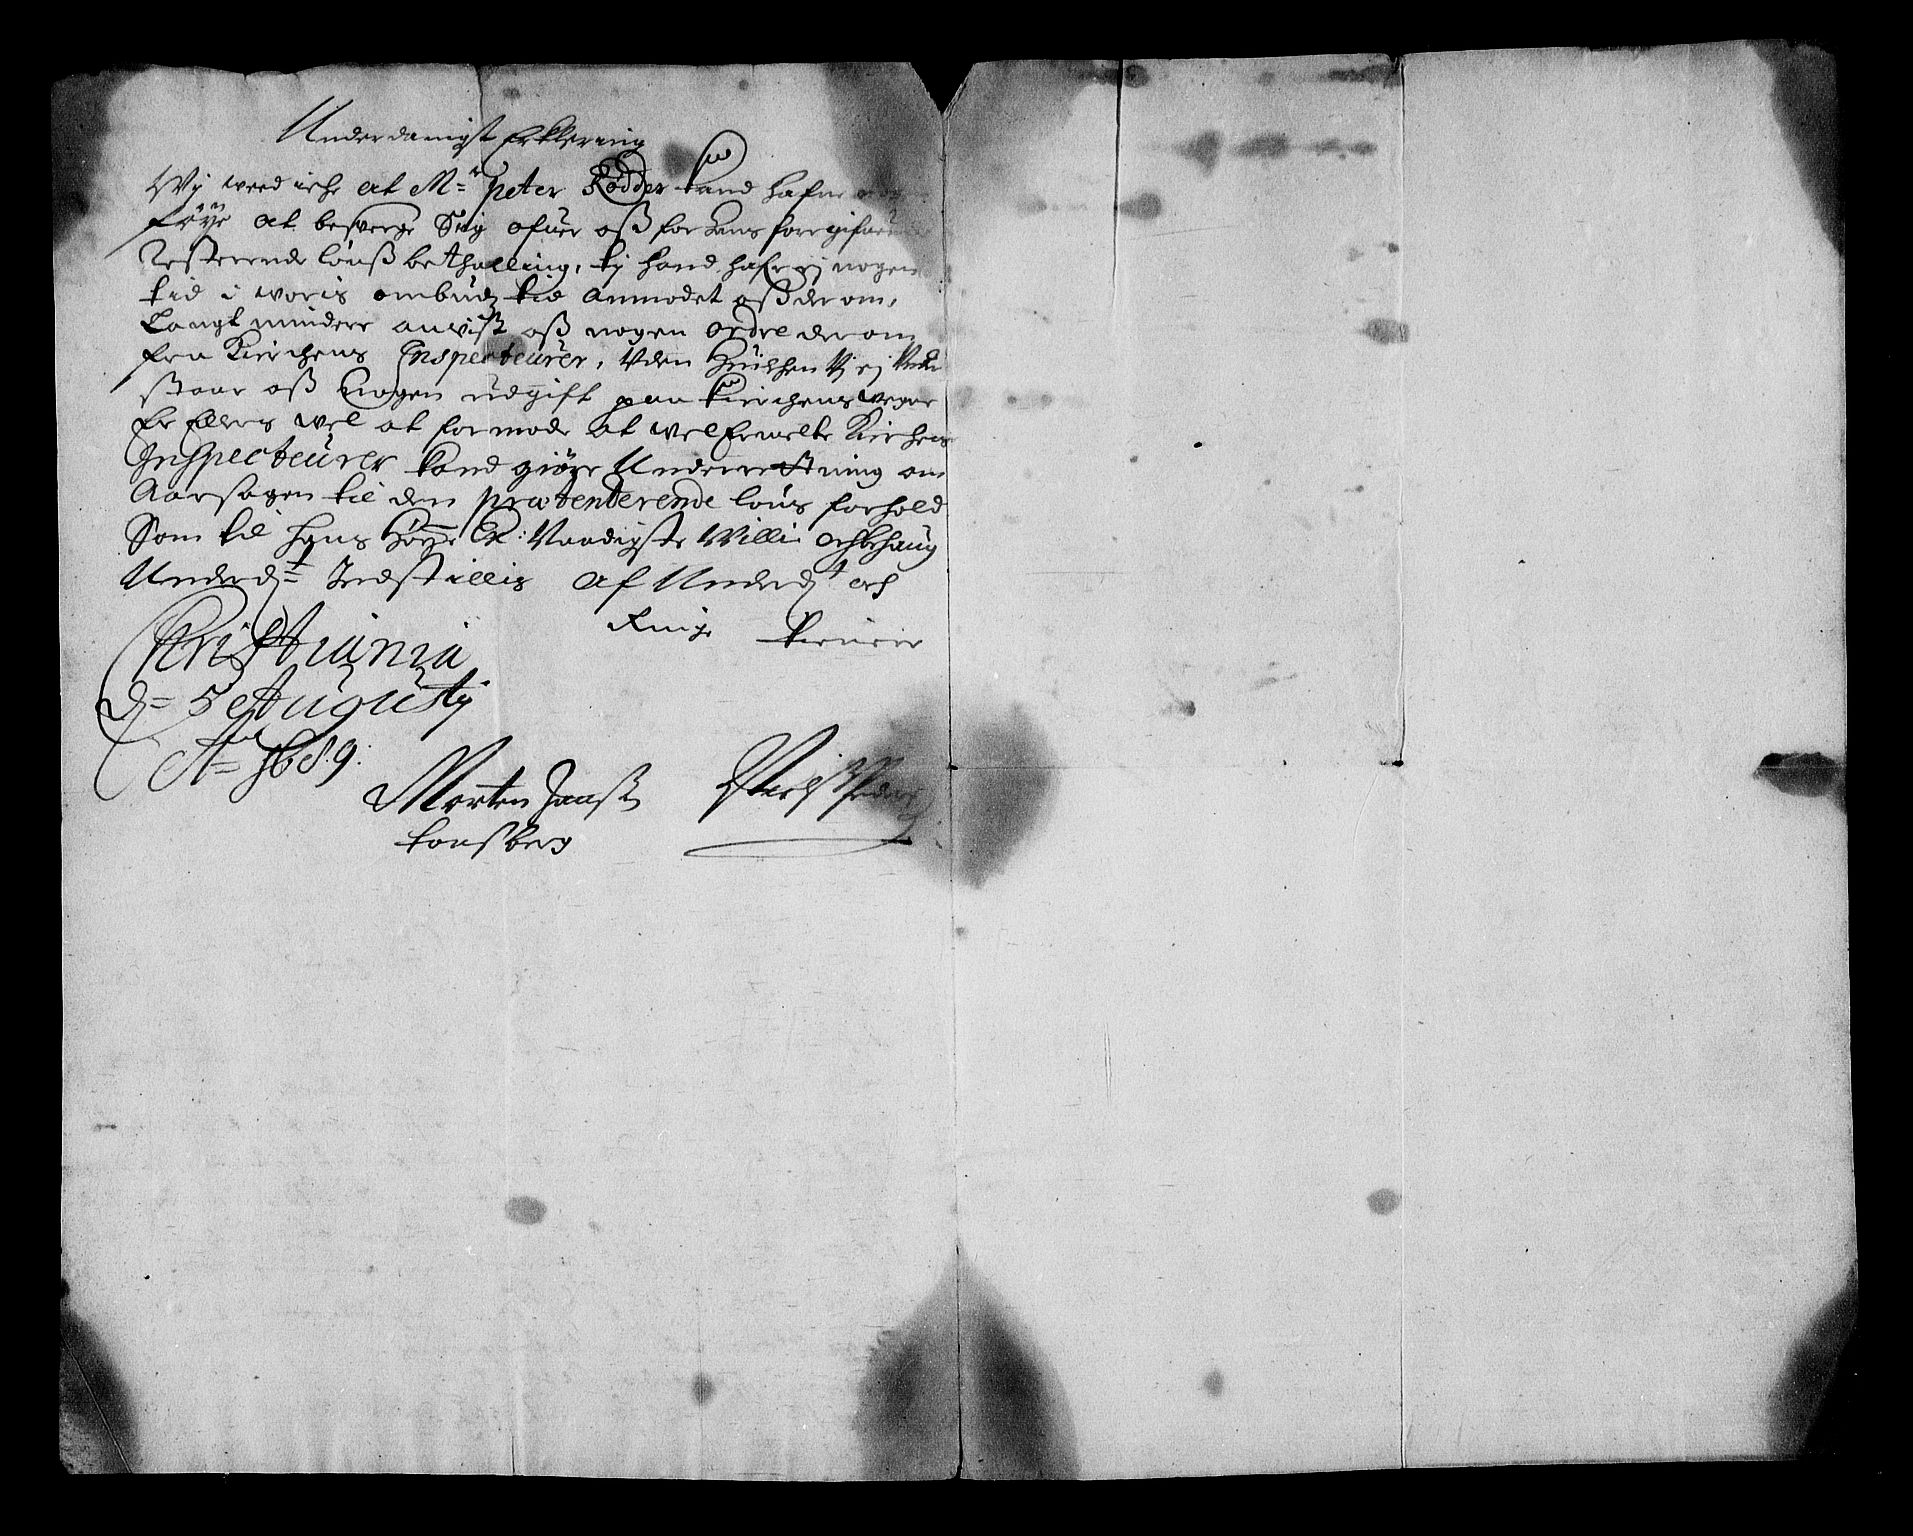 Underdanigst Erklering
Wij weed iche at M=r Peter Rødder kand hafue
føÿe at besverge Sig ofuer oß for hans foregifuende
Resterende lønß bethalling, tj hand hafr ej nogen
tid i woris ombudz tid anmodet oß der om,
Langt mindere anvist oß nogen ordre der om
fra Kirchens Inspecteurer, Uden Huilchen Vj ej
staar oß nogen udgift paa Kirchens vegne
Er Ellers vel at formode at velbemelte Kirchens
Inspecteurer kand giøre Underretning om
Aarsagen til den prætenterende løns forhold
Som til hans Høye Ex: Naadigste Willi och behaug
Underd=t Indstillis af Underd=t och
Ringe tienere
Christiania
d= 5 Augustj
A= 1689:
Morten Janß
Tonsberg